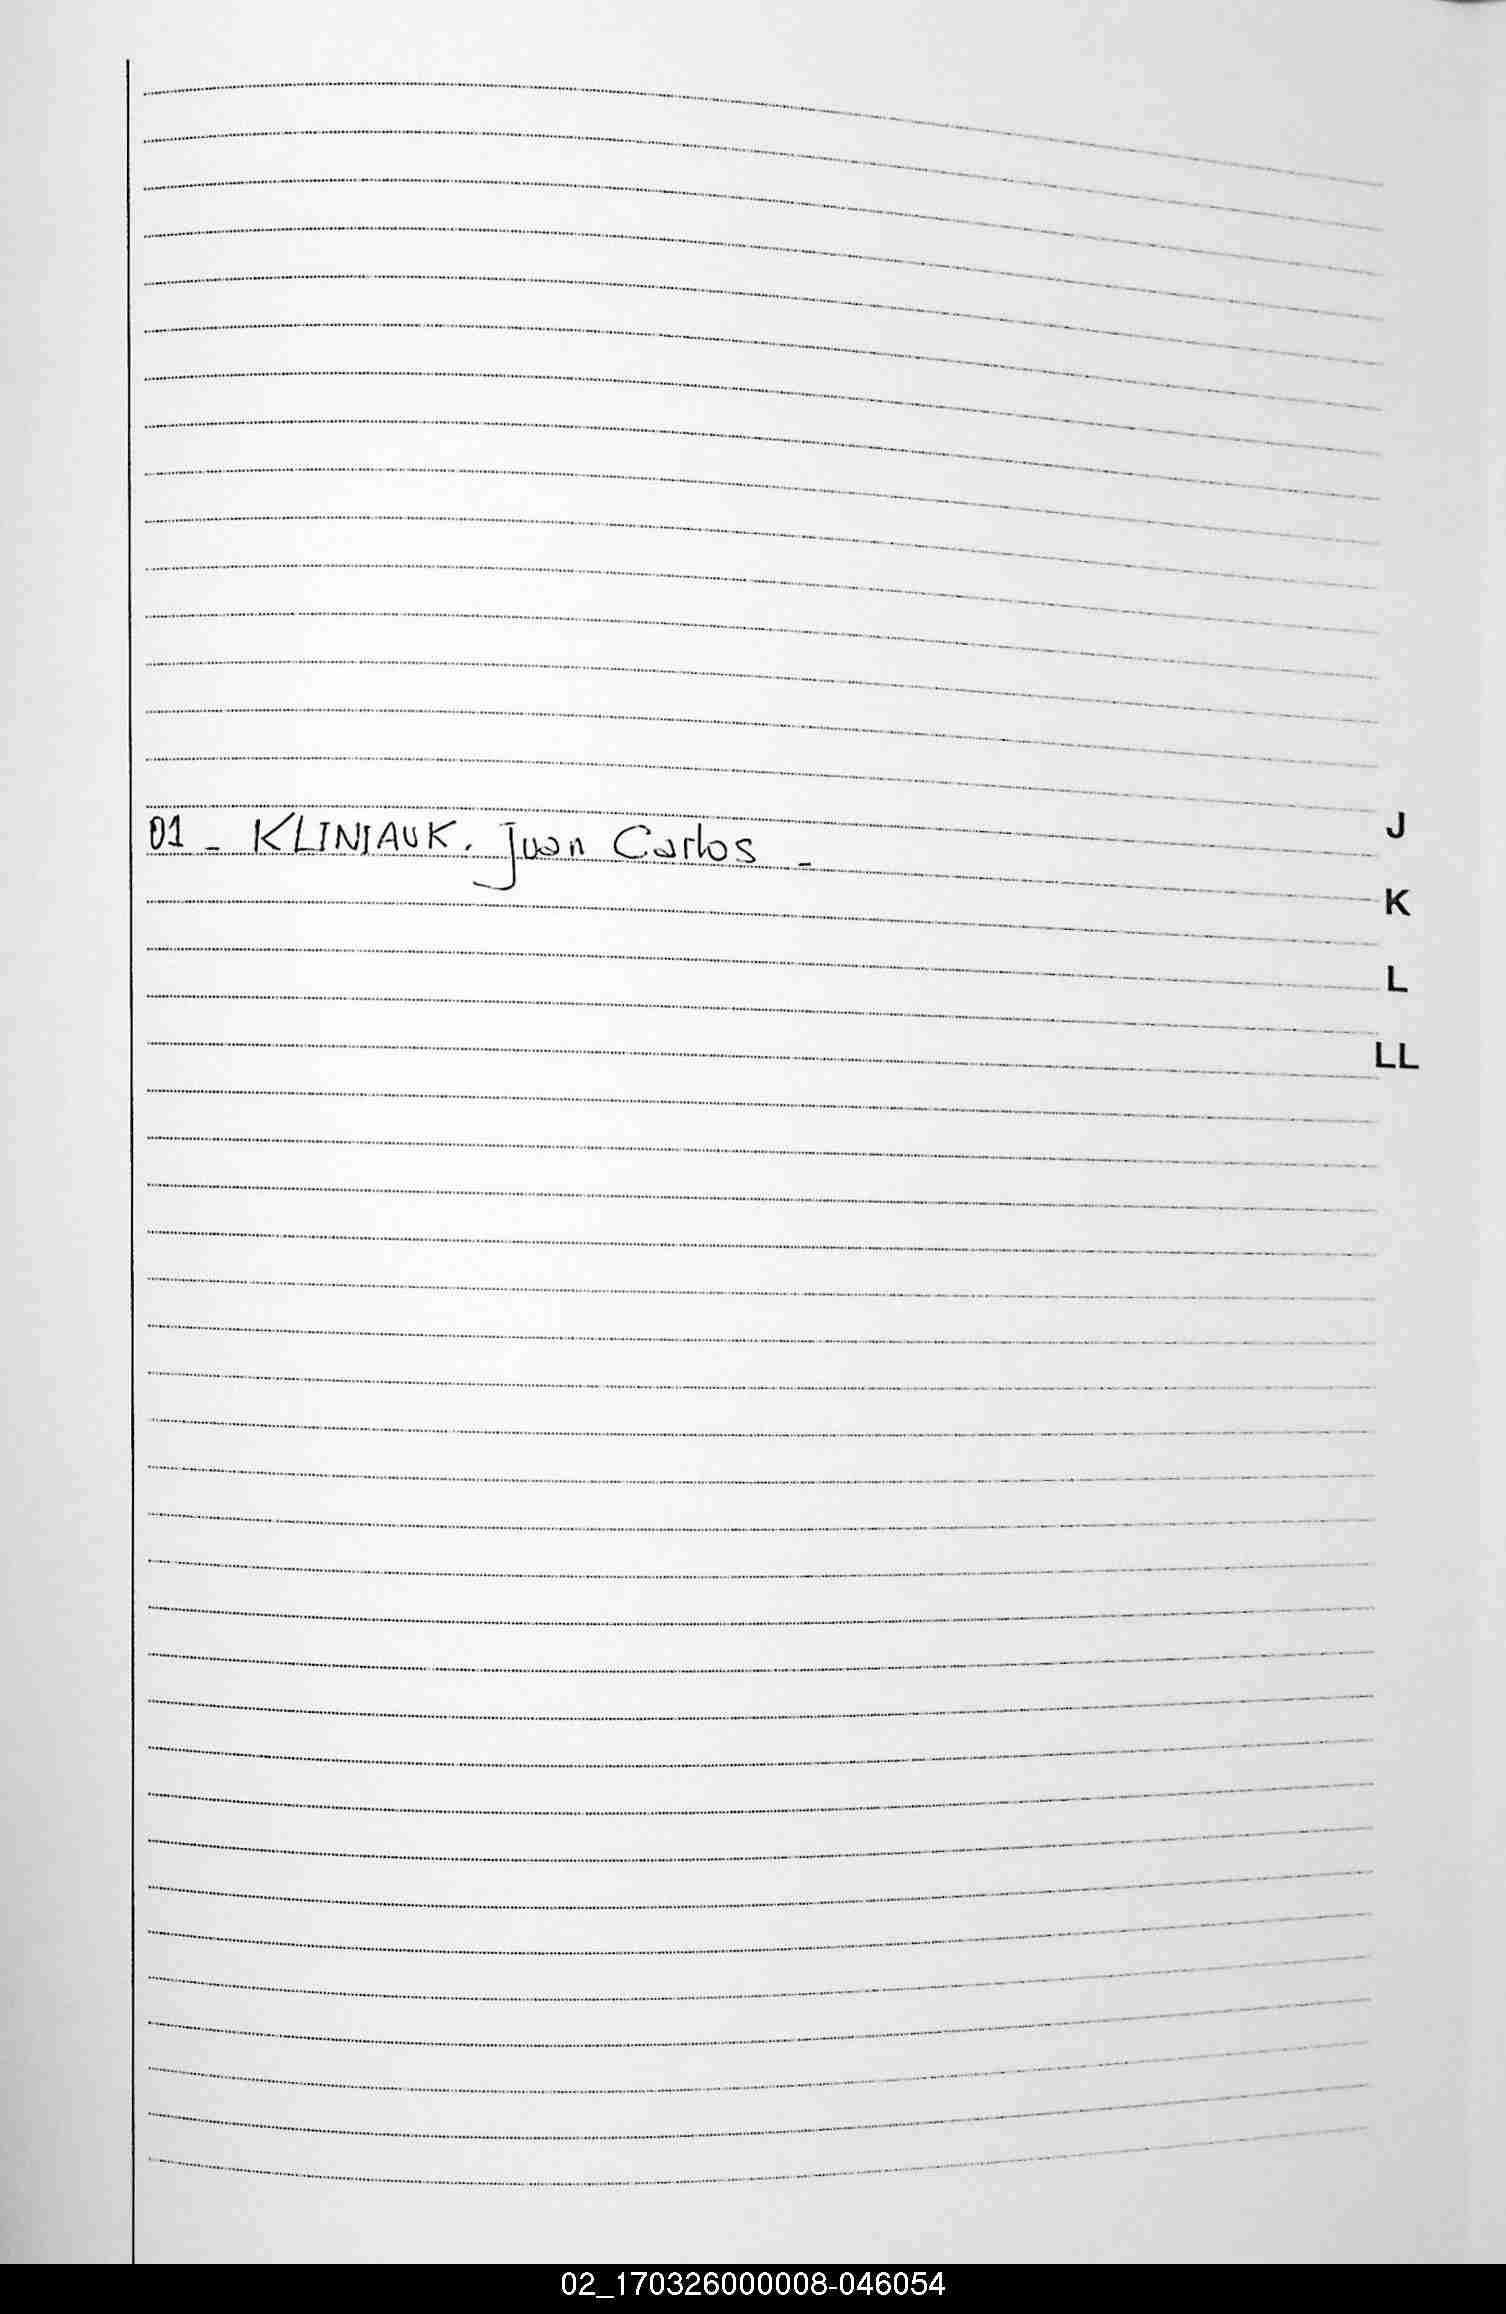 J
01 - KLINIAUK. Juan Carlos -
K
L
LL
02_170326000008-046054